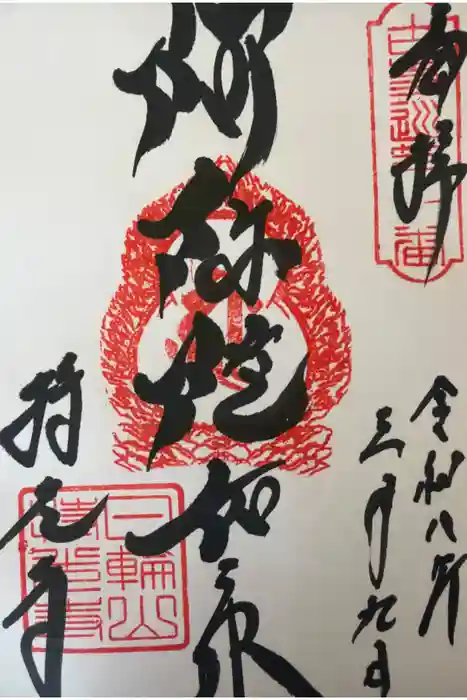 奉拝
令和八年
三月九日
阿弥陀如来
持光寺
日輪山
持光寺